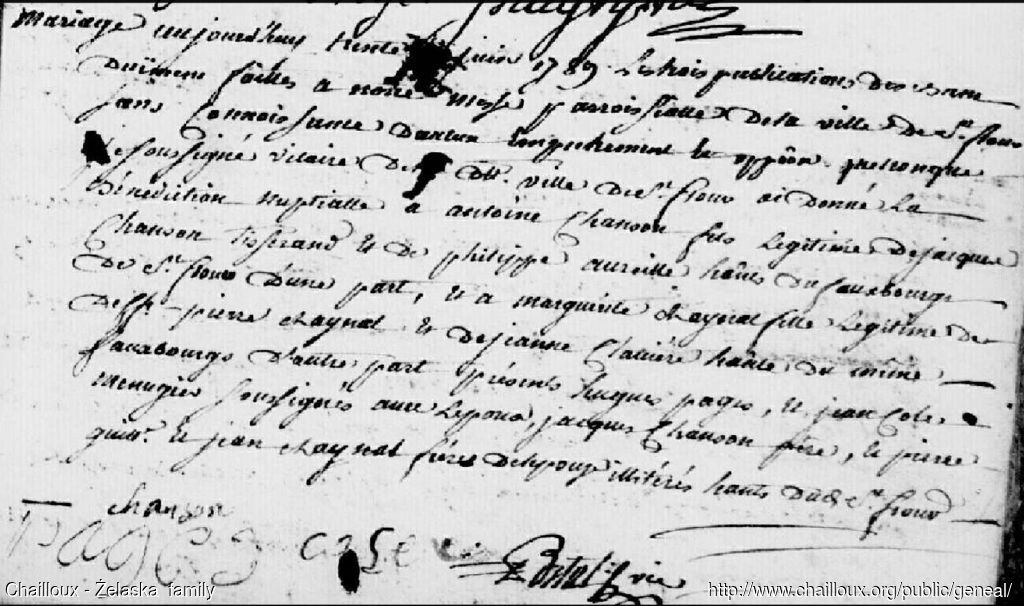 Mariage
aujourdhuy trente juin 1789 Les trois publications
faittes a notre Messe parroissialle de la ville de St flour
sans Connoissance d'aucun Empechement et oppôn quelconque
Je soussigné vicaire de la dte ville de St flour ai donné La
Bénédiction nuptialle a antoine Chanson fils Legitime de jacques
Chanson tisserand et de philippe aureille hâuts du fauxbourgs
de St flour d'une part, et a marguerite chaynat fille Legitime de
defft pierre chaynat et de jeanne Clavière hâute du même
fauxbourgs d'autre part présents hugues pages, et jean Coles
menugier soussignés avec Lepoux, jacques Chanson frère, et pierre
et jean chaynat frères illitérés hauts dud St flour
chanson
Pages
vic
Chailloux - Żelaska family
http://www.chailloux.org/public/geneal/